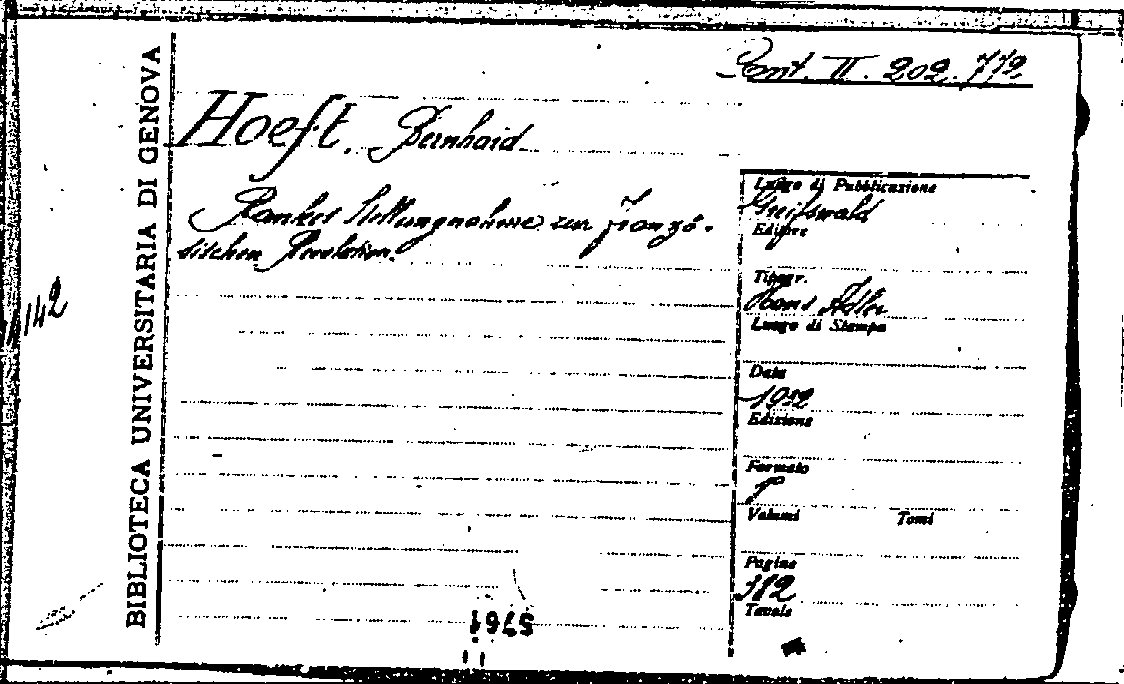 Pont. II. 202. 772
Hoeft, Bernhard
Rankes Stellungnahme zur Franzö-
sischen Revolution.
BIBLIOTECA UNIVERSITARIA DI GENOVA
142
Luogo di Pubblicazione
Greifswald
Editore
Tipogr.
Hans Adler
Luogo di Stampa
Data
1932
Edizione
Formato
8°
Volumi Tomi
Pagine
Tavole